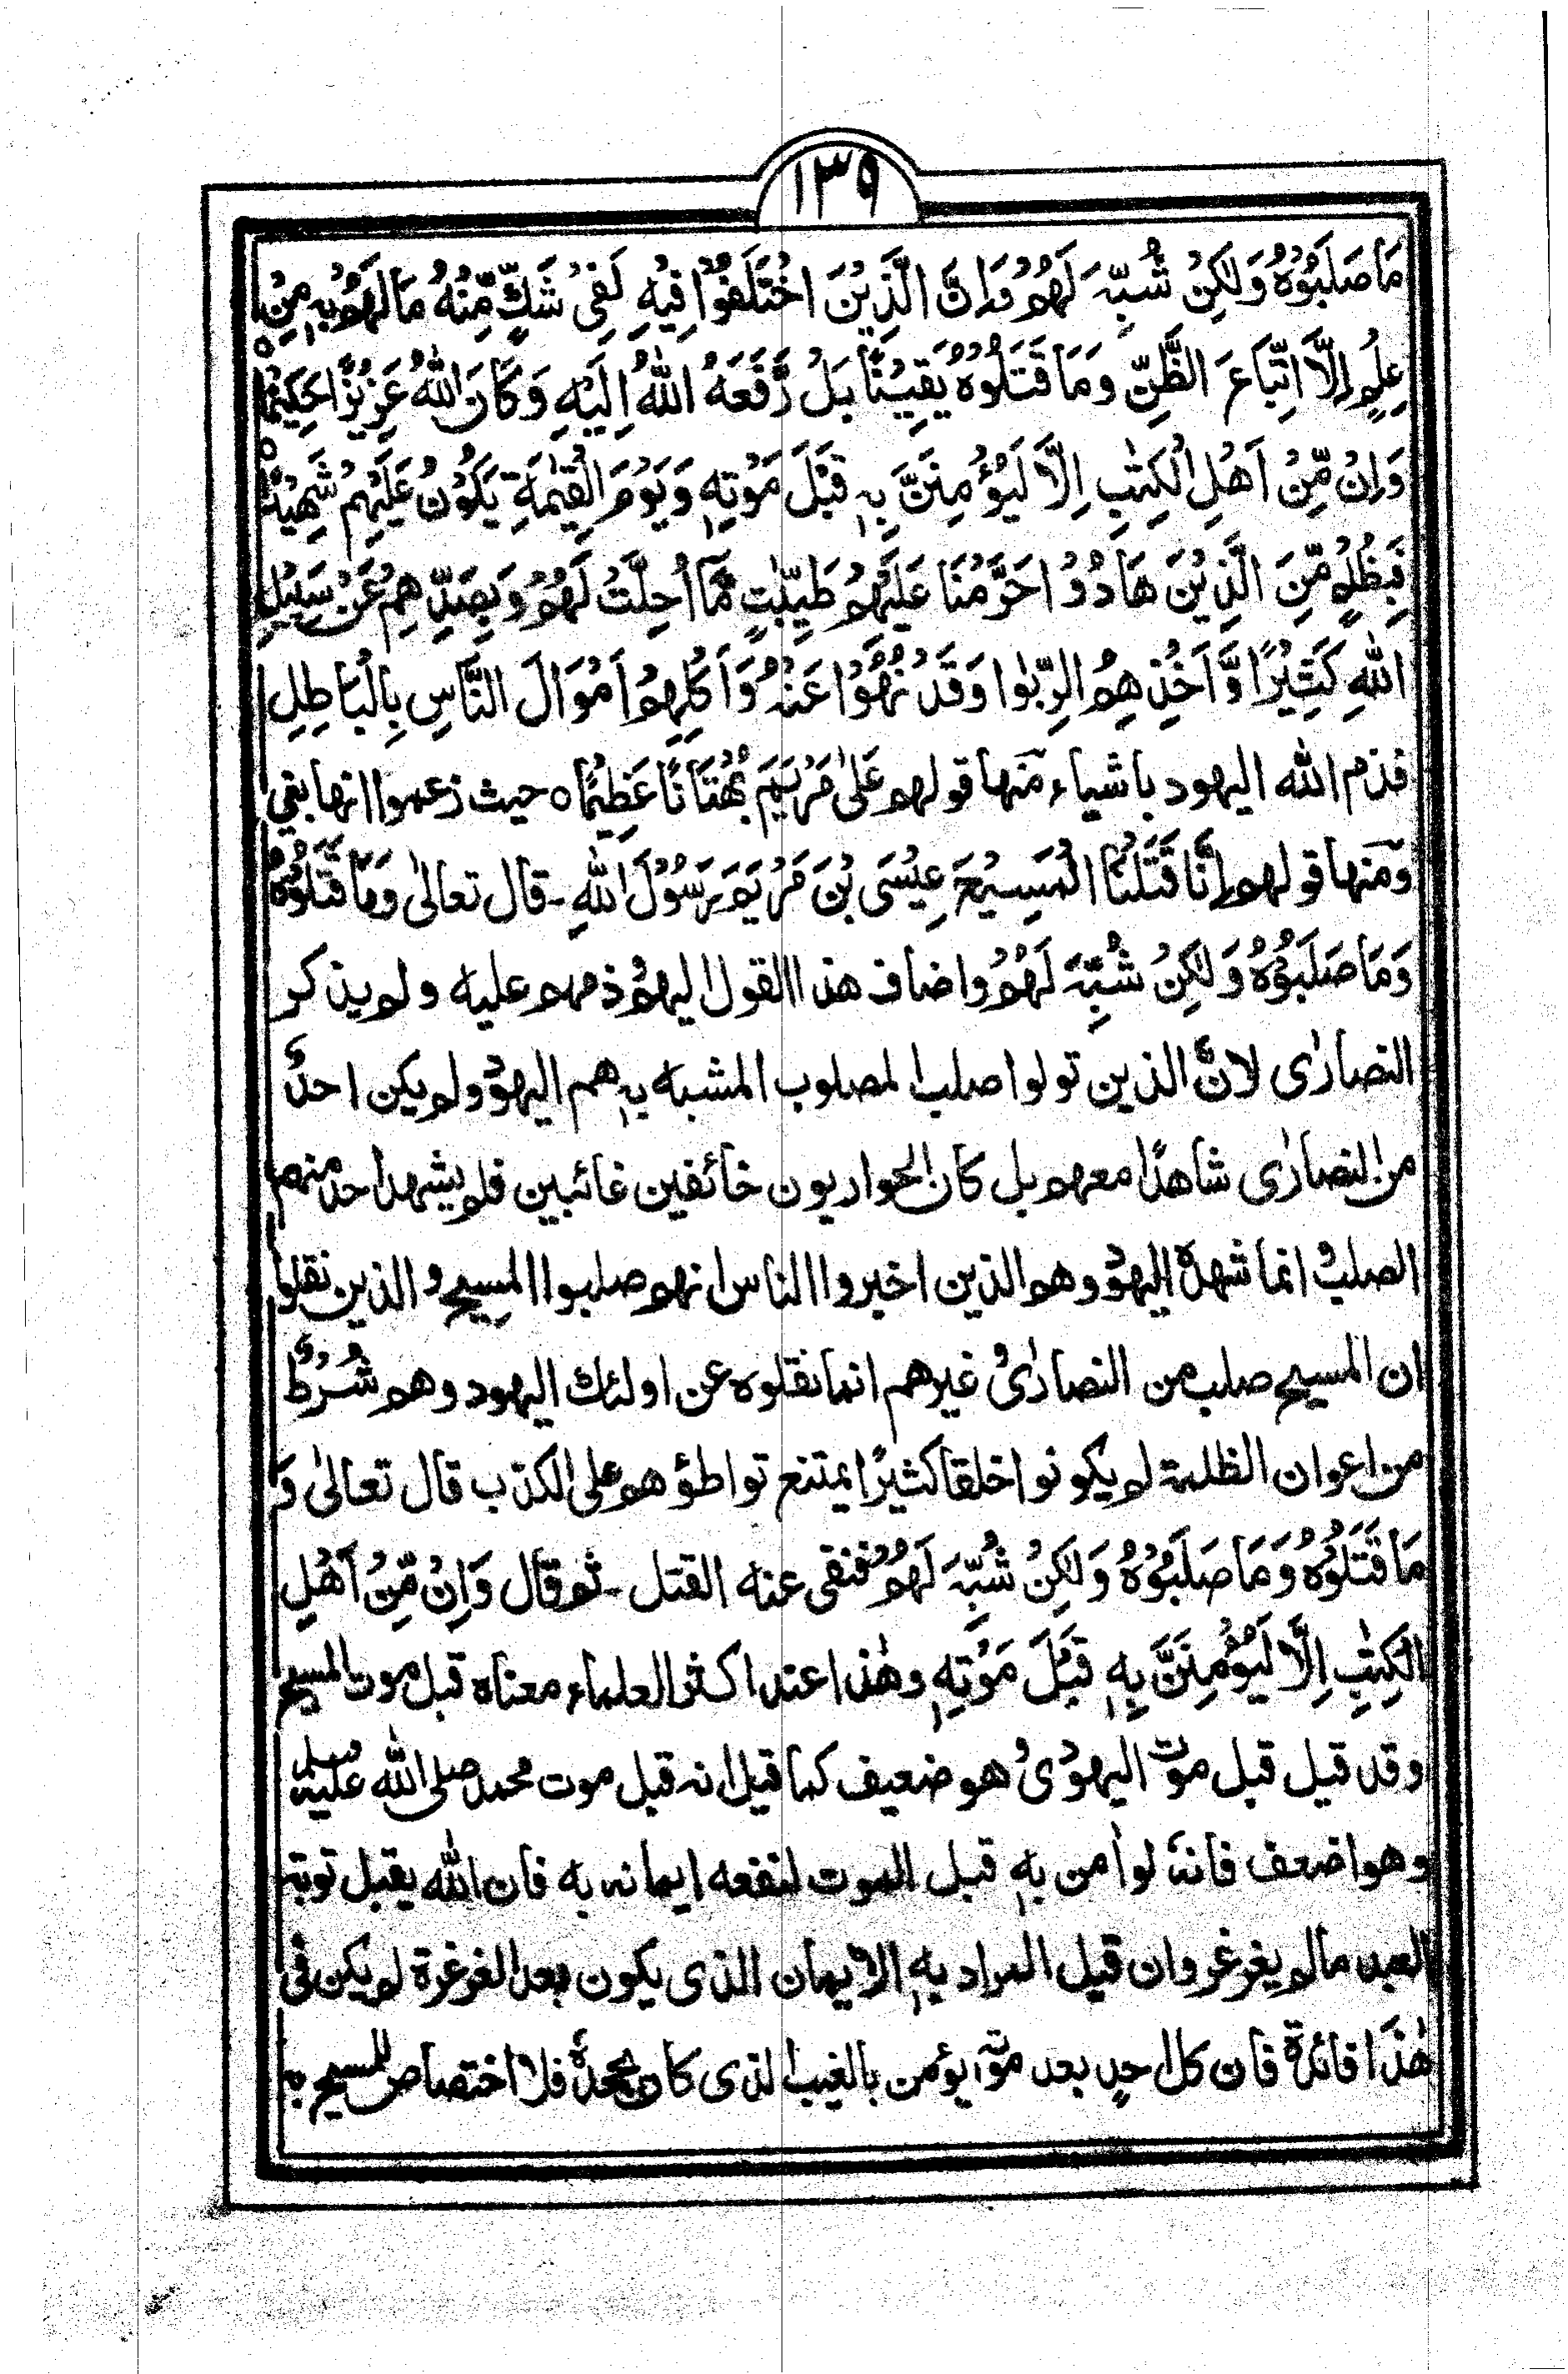 ۱۳۹
مَا صَلَبُوْهُ وَلٰكِنْ شُبِّهَ لَهُمْ وَاِنَّ الَّذِيْنَ اخْتَلَفُوْا فِيْهِ لَفِيْ شَكٍّ مِّنْهُ مَا لَهُمْ بِهٖ مِنْ
عِلْمٍ اِلَّا اتِّبَاعَ الظَّنِّ وَمَا قَتَلُوْهُ يَقِيْنًا بَلْ رَّفَعَهُ اللّٰهُ اِلَيْهِ وَكَانَ اللّٰهُ عَزِيْزًا حَكِيْمًا ٥
وَاِنْ مِّنْ اَهْلِ الْكِتٰبِ اِلَّا لَيُؤْمِنَنَّ بِهٖ قَبْلَ مَوْتِهٖ وَيَوْمَ الْقِيٰمَةِ يَكُوْنُ عَلَيْهِمْ شَهِيْدًا ٥
فَبِظُلْمٍ مِّنَ الَّذِيْنَ هَادُوْا حَرَّمْنَا عَلَيْهِمْ طَيِّبٰتٍ مَّآ اُحِلَّتْ لَهُمْ وَبِصَدِّهِمْ عَنْ سَبِيْلِ
اللّٰهِ كَثِيْرًا وَّاَخْذِهِمُ الرِّبٰوا وَقَدْ نُهُوْا عَنْهُ وَاَكْلِهِمْ اَمْوَالَ النَّاسِ بِالْبَاطِلِ
فذم الله اليهود باشياء منها قولهم عَلٰى مَرْيَمَ بُهْتَانًا عَظِيْمًا ٥ حيث زعموا انها بغي
ومنها قولهم اِنَّا قَتَلْنَا الْمَسِيْحَ عِيْسَى بْنَ مَرْيَمَ رَسُوْلَ اللّٰهِ ۔ قال تعالىٰ وَمَا قَتَلُوْهُ
وَمَا صَلَبُوْهُ وَلٰكِنْ شُبِّهَ لَهُمْ واضاف هذا القول اليهم وذمهم عليه ولم يذكر
النصارٰى لانَّ الذين تولوا صلب المصلوب المشبه بهٖ هم اليهود ولم يكن احدٌ
من النصارٰى شاهدًا معهم بل كان الحواريون خائفين غائبين فلم يشهد احد منهم
الصلب وانما شهدهٗ اليهود وهم الذين اخبروا الناس انهم صلبوا المسيح والذين نقلوا
ان المسيح صلب من النصارٰى وغيرهم انما نقلوه عن اولئك اليهود وهم شُرَطٌ
من اعوان الظلمة لم يكونوا خلقا كثيرًا يمتنع تواطؤهم على الكذب قال تعالىٰ وَ
مَا قَتَلُوْهُ وَمَا صَلَبُوْهُ وَلٰكِنْ شُبِّهَ لَهُمْ فنفى عنه القتل ۔ ثم قال وَاِنْ مِّنْ اَهْلِ
الْكِتٰبِ اِلَّا لَيُؤْمِنَنَّ بِهٖ قَبْلَ مَوْتِهٖ وهٰذا عند اكثر العلماء معناه قبل موت المسيح
وقد قيل قبل موت اليهودى وهو ضعيف كما قيل انه قبل موت محمد صلى الله عليه وسلم
وهو اضعف فانهٗ لو اٰمن بهٖ قبل الموت لنفعه ايمانه به فان الله يقبل توبة
العبد مالم يغرغر وان قيل المراد بهٖ الايمان الذى يكون بعد الغرغرة لم يكن فى
هٰذا فائدة فان كل احدٍ بعد موته يؤمن بالغيب الذى كان يجحدهٗ فلا اختصاص للمسيح به